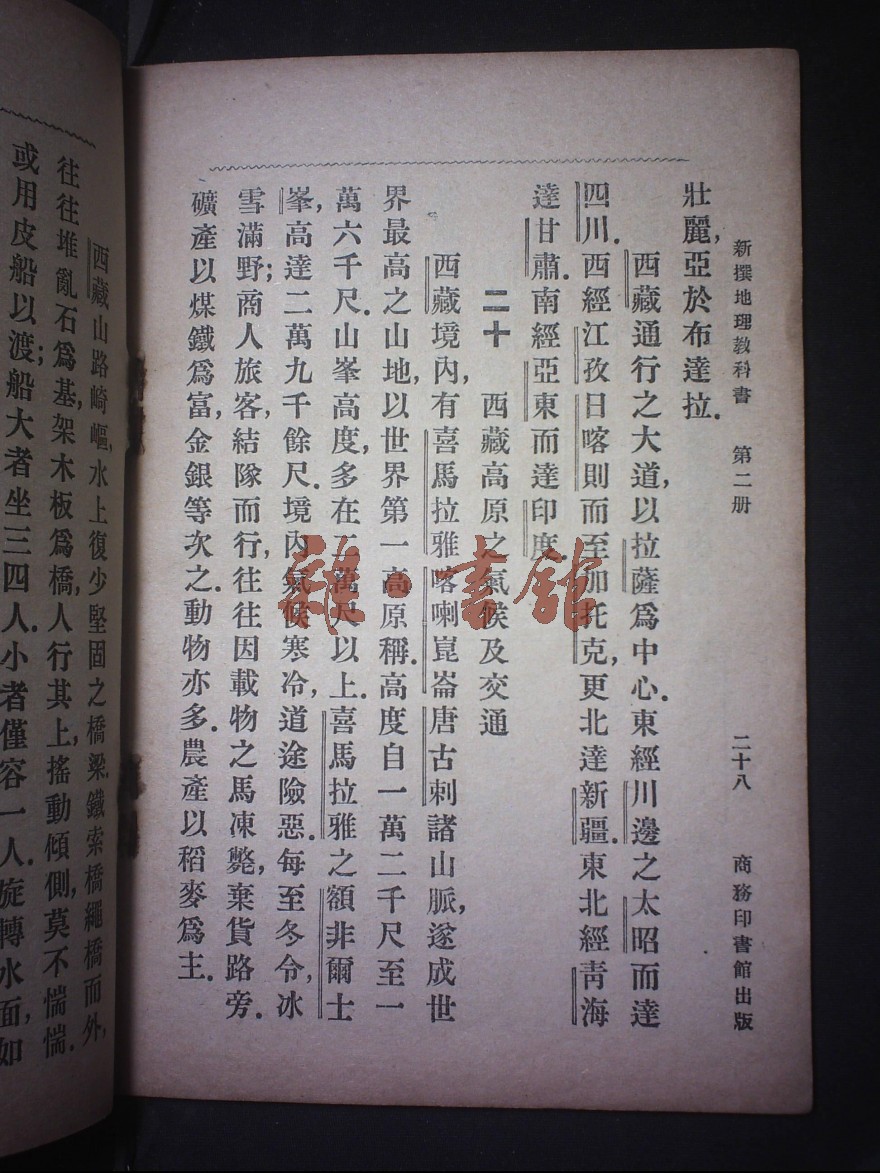 新撰地理教科書 第二册 二十八 商務印書館出版
壯麗,亞於布達拉.
西藏通行之大道,以拉薩爲中心.東經川邊之太昭而達
四川.西經江孜日喀則而至加托克,更北達新疆.東北經靑海
達甘肅.南經亞東而達印度.
二十 西藏高原之氣候及交通
西藏境內,有喜馬拉雅喀喇崑崙唐古剌諸山脈,遂成世
界最高之山地,以世界第一高原稱.高度自一萬二千尺至一
萬六千尺.山峯高度,多在二萬尺以上.喜馬拉雅之額非爾士
峯,高達二萬九千餘尺.境內氣候寒冷,道途險惡.每至冬令,冰
雪滿野;商人旅客,結隊而行,往往因載物之馬凍斃,棄貨路旁.
礦產以煤鐵爲富,金銀等次之.動物亦多.農產以稻麥爲主.
西藏山路崎嶇,水上復少堅固之橋梁.鐵索橋繩橋而外,
往往堆亂石爲基,架木板爲橋,人行其上,搖動傾側,莫不惴惴.
或用皮船以渡,船大者坐三四人.小者僅容一人.旋轉水面,如
雜·書館